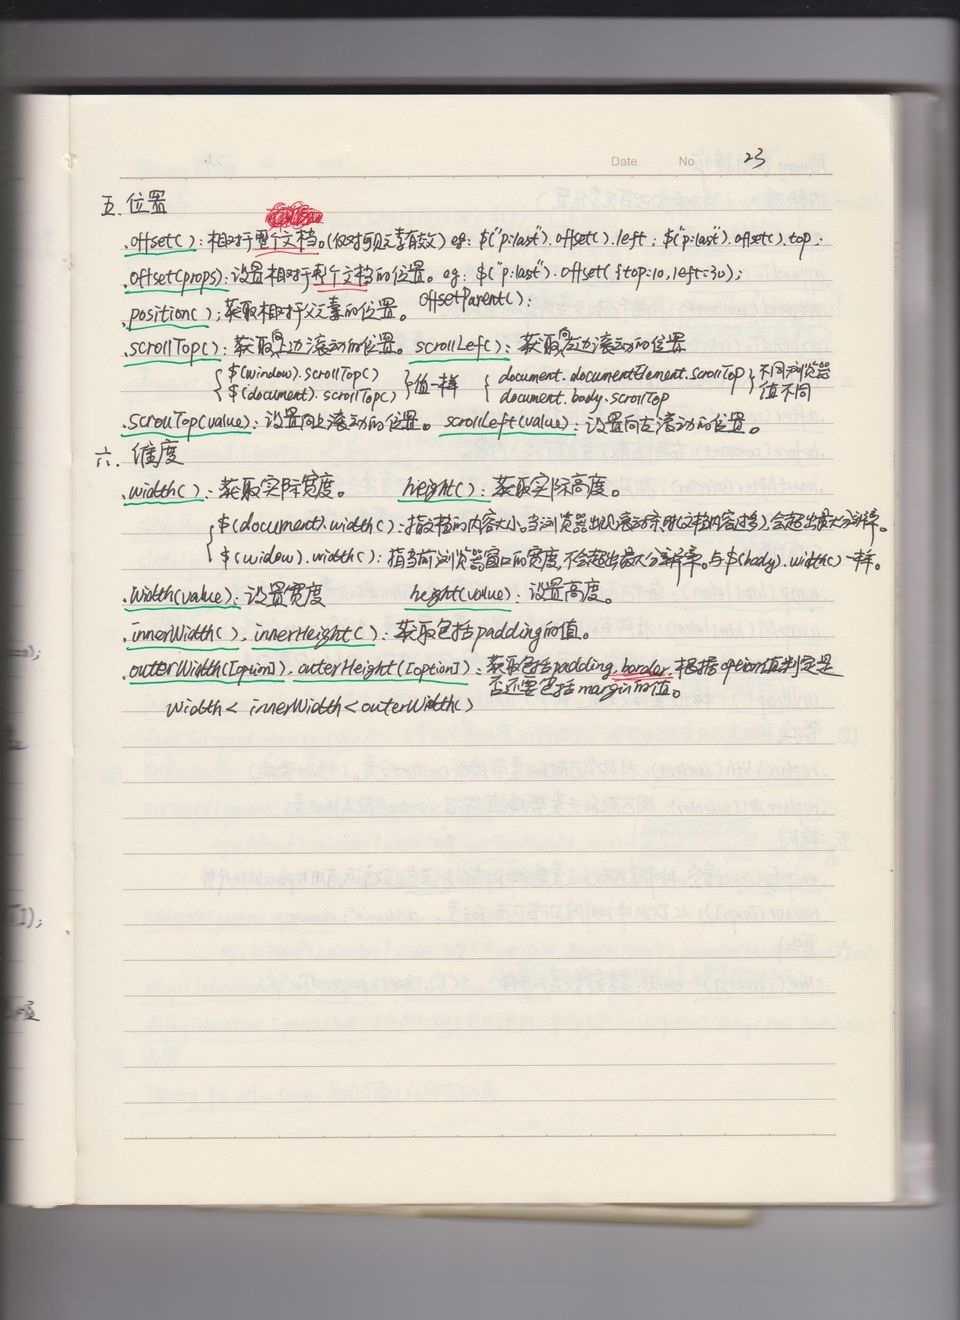 Date No 23
五. 位置
.offset(): 相对于整个文档。(仅对可见元素有效) eg: $("p:last").offset().left; $("p:last").offset().top;
.offset(props): 设置相对于整个文档的位置。eg: $("p:last").offset({top=10,left=30);
.position(): 获取相对于父元素的位置。 offsetParent():
.scrollTop(): 获取向上边滚动的位置。 scrollLeft(): 获取向左边滚动的位置
$(window).scrollTop() 值一样 document.documentElement.scrollTop 不同浏览器
$(document).scrollTop() document.body.scrollTop 值不同
.scrollTop(value): 设置向上滚动的位置。 scrollLeft(value): 设置向左滚动的位置。
六. 维度
.width(): 获取实际宽度。 height(): 获取实际高度。
$(document).width(): 指文档的内容大小。当浏览器出现滚动条时(文档内容过多),会超出最大分辨率。
$(widow).width(): 指当前浏览器窗口的宽度,不会超出最大分辨率。与$(body).width()一样。
.width(value): 设置宽度 height(value): 设置高度。
.innerWidth(). innerHeight(): 获取包括padding的值。
.outerWidth([option]). outerHeight([option]): 获取包括padding, border, 根据option值判定是
否还要包括margin的值。
width < innerWidth < outerWidth()